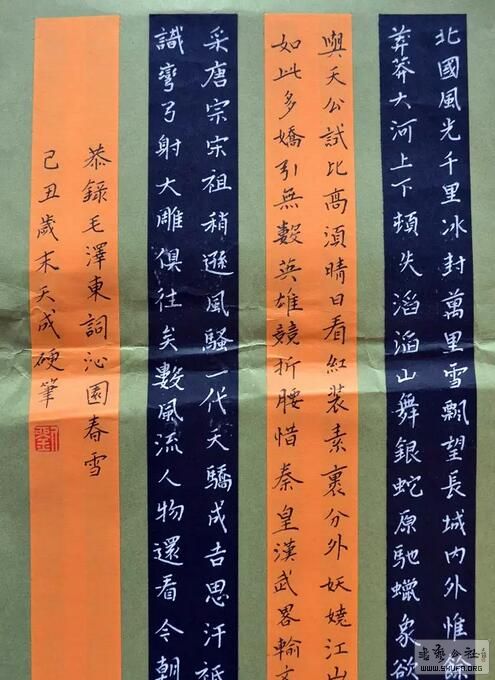 北國風光千里冰封萬里雪飄望長城内外惟餘
莽莽大河上下頓失滔滔山舞銀蛇原馳蠟象欲
與天公試比高須晴日看紅装素裹分外妖嬈江山
如此多嬌引無數英雄競折腰惜秦皇漢武畧輸文
采唐宗宋祖稍遜風騷一代天驕成吉思汗祗
識彎弓射大雕俱往矣數風流人物還看今朝
恭錄毛澤東詞沁園春雪
己丑歲末天成硬筆
WWW.SHUFA.ORG